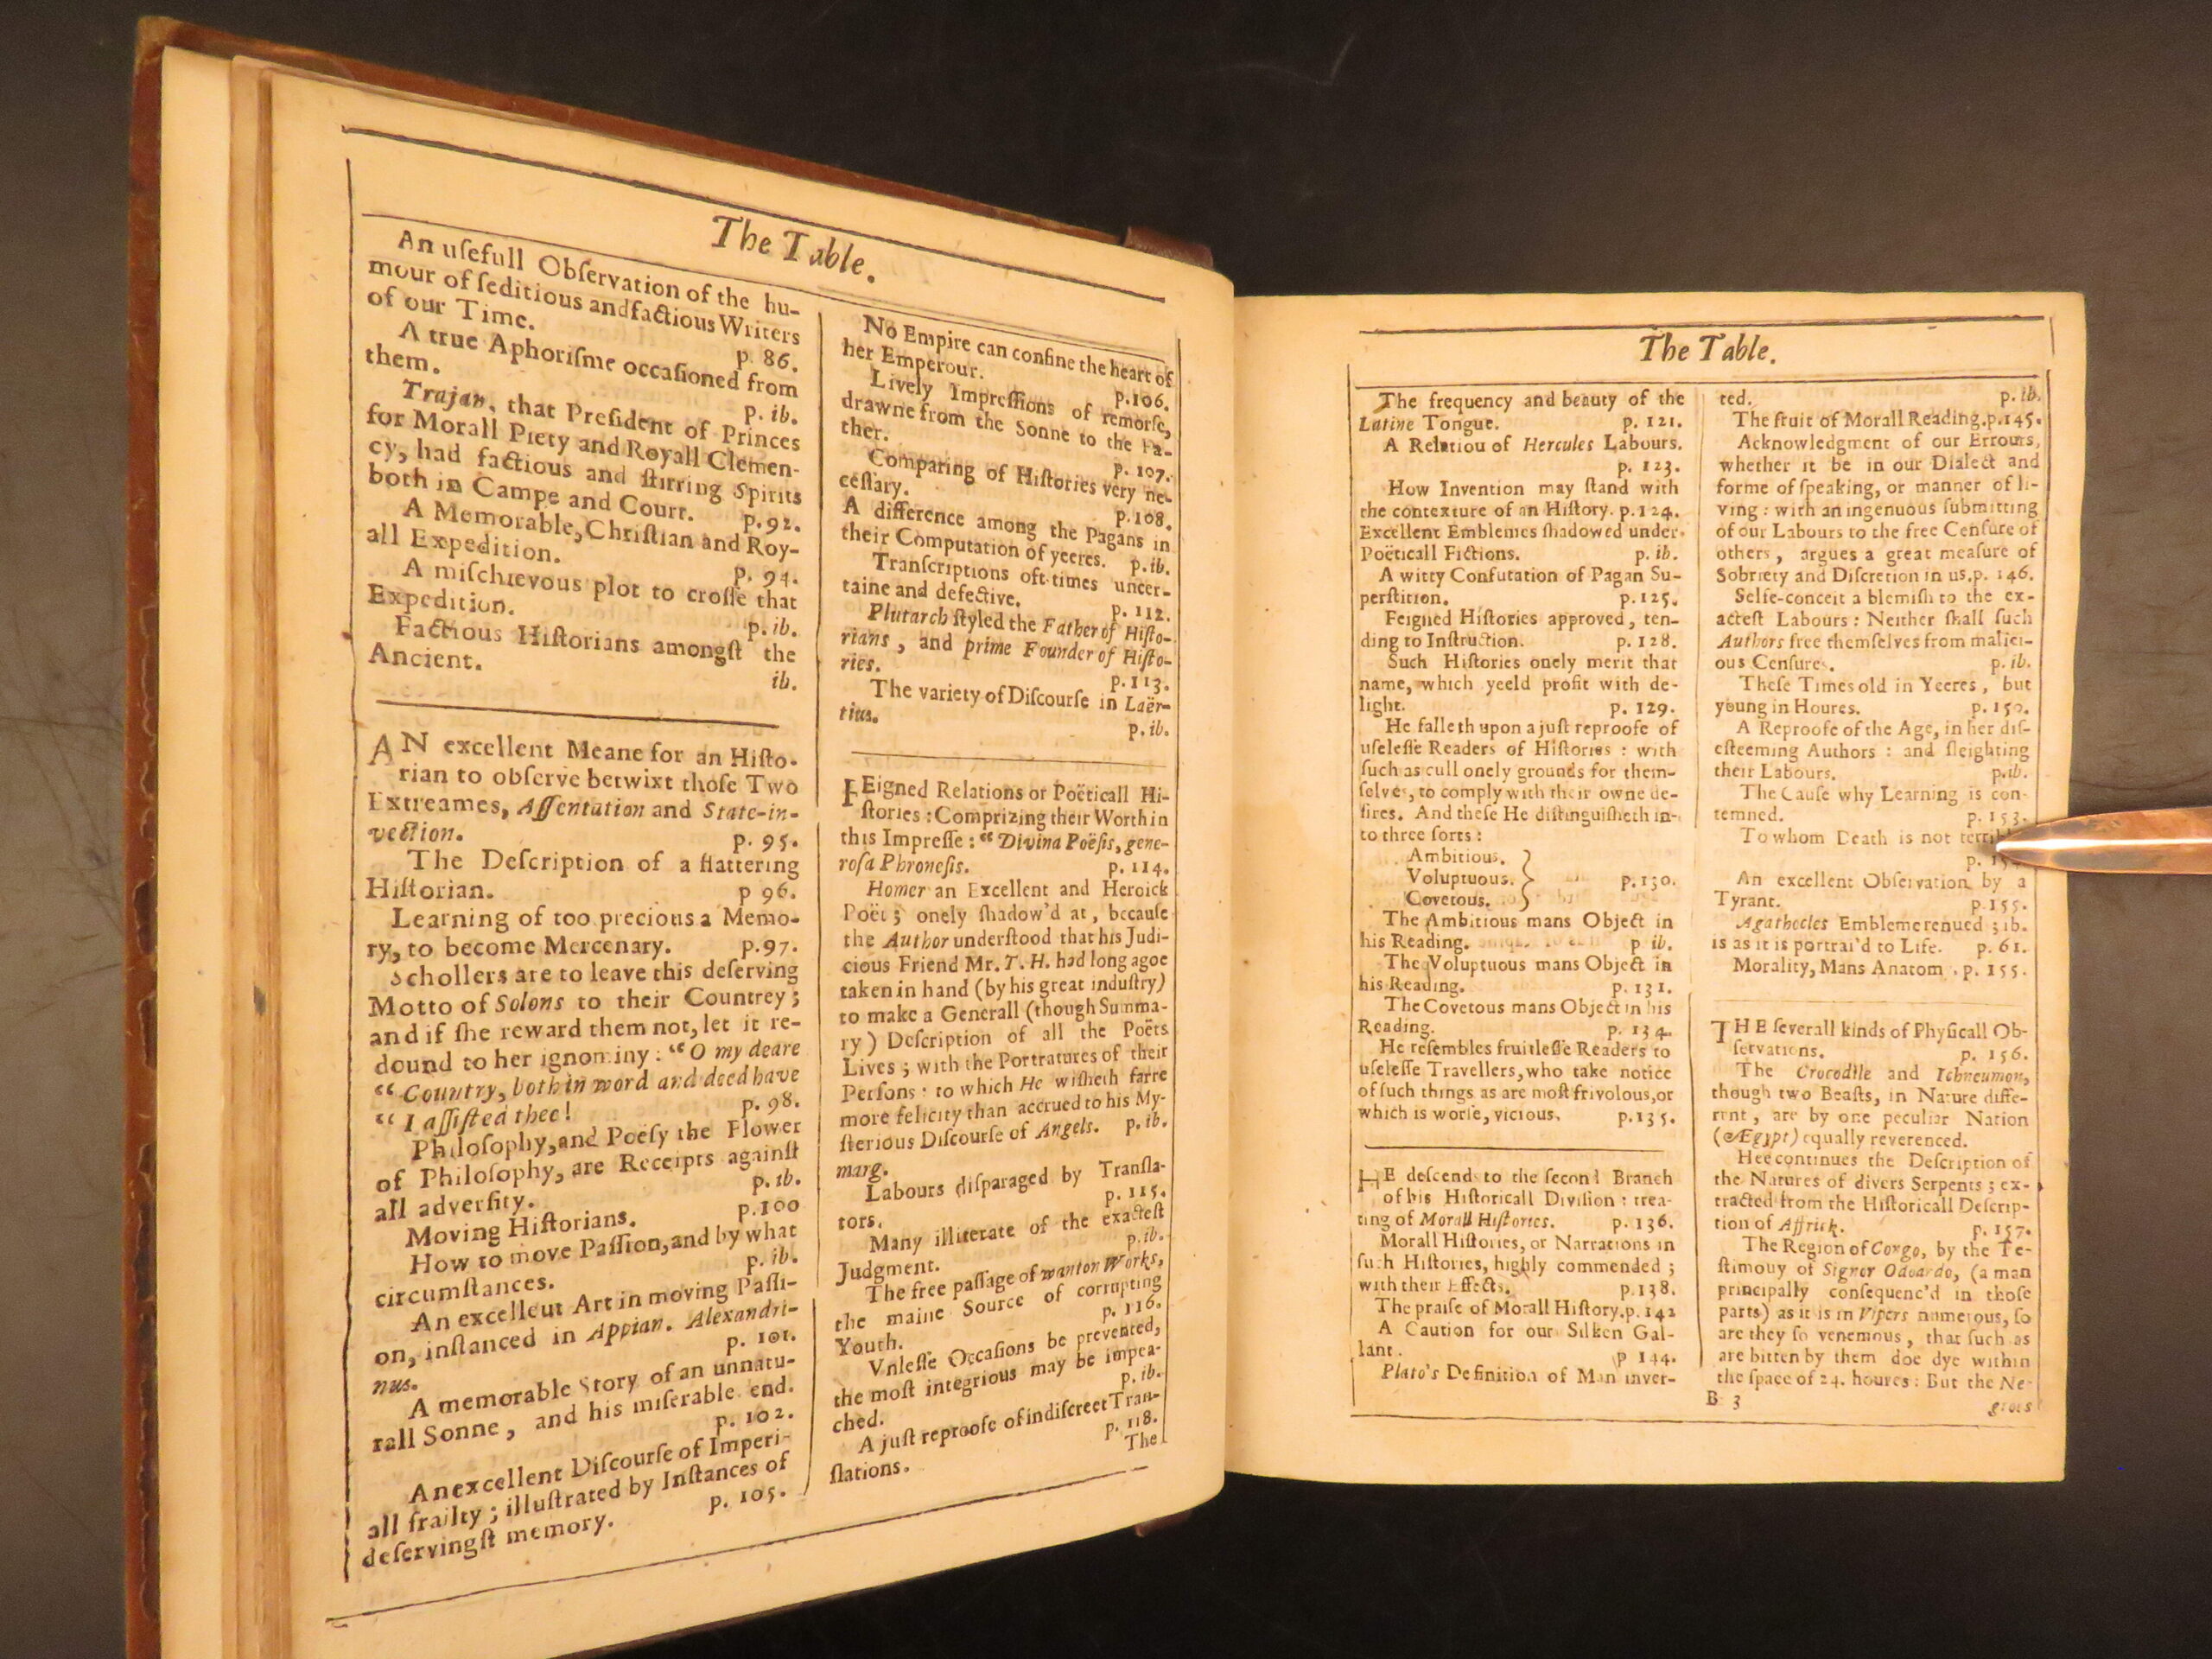 The Table.
An uſefull Obſervation of the hu-
mour of ſeditious andfactious Writers
of our Time.
p. 86.
A true Aphoriſme occaſioned from
them.
p. ib.
Trajan, that Preſident of Princes
for Morall Piety and Royall Clemen-
cy, had factious and ſtirring Spirits
both in Campe and Court. p.92.
A Memorable, Chriſtian and Roy-
all Expedition.
p. 94.
A miſchievous plot to croſſe that
Expedition.
p. ib.
Factious Hiſtorians amongſt the
Ancient.
ib.
AN excellent Meane for an Hiſto-
rian to obſerve betwixt thoſe Two
Extreames, Aſſentation and State-in-
vection. p. 95.
The Deſcription of a flattering
Hiſtorian. p 96.
Learning of too precious a Memo-
ry, to become Mercenary. p.97.
Schollers are to leave this deſerving
Motto of Solons to their Countrey;
and if ſhe reward them not, let it re-
dound to her ignominy: "O my deare
"Country, both in word and deed have
"I aſſiſted thee! p. 98.
Philoſophy, and Poeſy the Flower
of Philoſophy, are Receipts againſt
all adverſity. p. ib.
Moving Hiſtorians. p.100
How to move Paſſion, and by what
circumſtances. p. ib.
An excellent Art in moving Paſſi-
on, inſtanced in Appian. Alexandri-
nus. p. 101.
A memorable Story of an unnatu-
rall Sonne, and his miſerable end.
p. 102.
An excellent Diſcourſe of Imperi-
all frailty; illuſtrated by Inſtances of
deſervingſt memory. p. 105.
No Empire can confine the heart of
her Emperour. p.106.
Lively Impreſſions of remorſe,
drawne from the Sonne to the Fa-
ther. p. 107.
Comparing of Hiſtories very ne-
ceſſary. p.108.
A difference among the Pagans in
their Computation of yeeres. p.ib.
Tranſcriptions oft-times uncer-
taine and defective. p. 112.
Plutarch ſtyled the Father of Hiſto-
rians, and prime Founder of Hiſto-
ries. p.113.
The variety of Diſcourſe in Laër-
tius. p. ib.
FEigned Relations or Poëticall Hi-
ſtories: Comprizing their Worth in
this Impreſſe: "Divina Poëſis, gene-
roſa Phroneſis. p. 114.
Homer an Excellent and Heroick
Poët; onely ſhadow'd at, becauſe
the Author underſtood that his Judi-
cious Friend Mr. T. H. had long agoe
taken in hand (by his great induſtry)
to make a Generall (though Summa-
ry) Deſcription of all the Poëts
Lives; with the Portratures of their
Perſons: to which He wiſheth farre
more felicity than accrued to his My-
ſterious Diſcourſe of Angels. p. ib.
marg.
Labours diſparaged by Tranſla-
tors. p. 115.
Many illiterate of the exacteſt
Judgment. p. ib.
The free paſſage of wanton Works,
the maine Source of corrupting
Youth. p. 116.
Vnleſſe Occaſions be prevented,
the moſt integrious may be impea-
ched. p. ib.
A juſt reproofe of indiſcreet Tran-
ſlations. p. 118.
The
The Table.
The frequency and beauty of the
Latine Tongue. p. 121.
A Relatiou of Hercules Labours.
p. 123.
How Invention may ſtand with
the contexture of an Hiſtory. p.124.
Excellent Emblemes ſhadowed under
Poëticall Fictions. p. ib.
A witty Confutation of Pagan Su-
perſtition. p.125.
Feigned Hiſtories approved, ten-
ding to Inſtruction. p. 128.
Such Hiſtories onely merit that
name, which yeeld profit with de-
light. p. 129.
He falleth upon a juſt reproofe of
uſeleſſe Readers of Hiſtories: with
ſuch as cull onely grounds for them-
ſelves, to comply with their owne de-
ſires. And theſe He diſtinguiſheth in-
to three ſorts:
Ambitious.
Voluptuous. } p.130.
Covetous.
The Ambitious mans Object in
his Reading. p ib.
The Voluptuous mans Object in
his Reading. p. 131.
The Covetous mans Object in his
Reading. p. 134.
He reſembles fruitleſſe Readers to
uſeleſſe Travellers, who take notice
of ſuch things as are moſt frivolous, or
which is worſe, vicious. p.135.
HE deſcends to the ſecond Branch
of his Hiſtoricall Diviſion: trea-
ting of Morall Hiſtories. p. 136.
Morall Hiſtories, or Narrations in
ſuch Hiſtories, highly commended;
with their Effects. p.138.
The praiſe of Morall Hiſtory. p. 142
A Caution for our Silken Gal-
lant. p 144.
Plato's Definition of Man inver-
ted. p. ib.
The fruit of Morall Reading. p.145.
Acknowledgment of our Errours,
whether it be in our Dialect and
forme of ſpeaking, or manner of li-
ving: with an ingenuous ſubmitting
of our Labours to the free Cenſure of
others, argues a great meaſure of
Sobriety and Diſcretion in us. p. 146.
Selfe-conceit a blemiſh to the ex-
acteſt Labours: Neither ſhall ſuch
Authors free themſelves from malici-
ous Cenſures. p. ib.
Theſe Times old in Yeeres, but
young in Houres. p. 150.
A Reproofe of the Age, in her diſ-
eſteeming Authors: and ſleighting
their Labours. p.ib.
The Cauſe why Learning is con-
temned. p. 153.
To whom Death is not
p.
An excellent Obſervation by a
Tyrant. p.155.
Agathocles Embleme renued; ib.
is as it is portrai'd to Life. p. 61.
Morality, Mans Anatom . p. 155.
THE ſeverall kinds of Phyſicall Ob-
ſervations. p. 156.
The Crocodile and Ichneumon,
though two Beaſts, in Nature diffe-
rent, are by one peculiar Nation
(Ægypt) equally reverenced.
Hee continues the Deſcription of
the Natures of divers Serpents; ex-
tracted from the Hiſtoricall Deſcrip-
tion of Affrick. p. 157.
The Region of Congo, by the Te-
ſtimony of Signor Odoardo, (a man
principally conſequenc'd in thoſe
parts) as it is in Vipers numerous, ſo
are they ſo venemous, that ſuch as
are bitten by them doe dye within
the ſpace of 24. houres: But the Ne-
B 3
groes